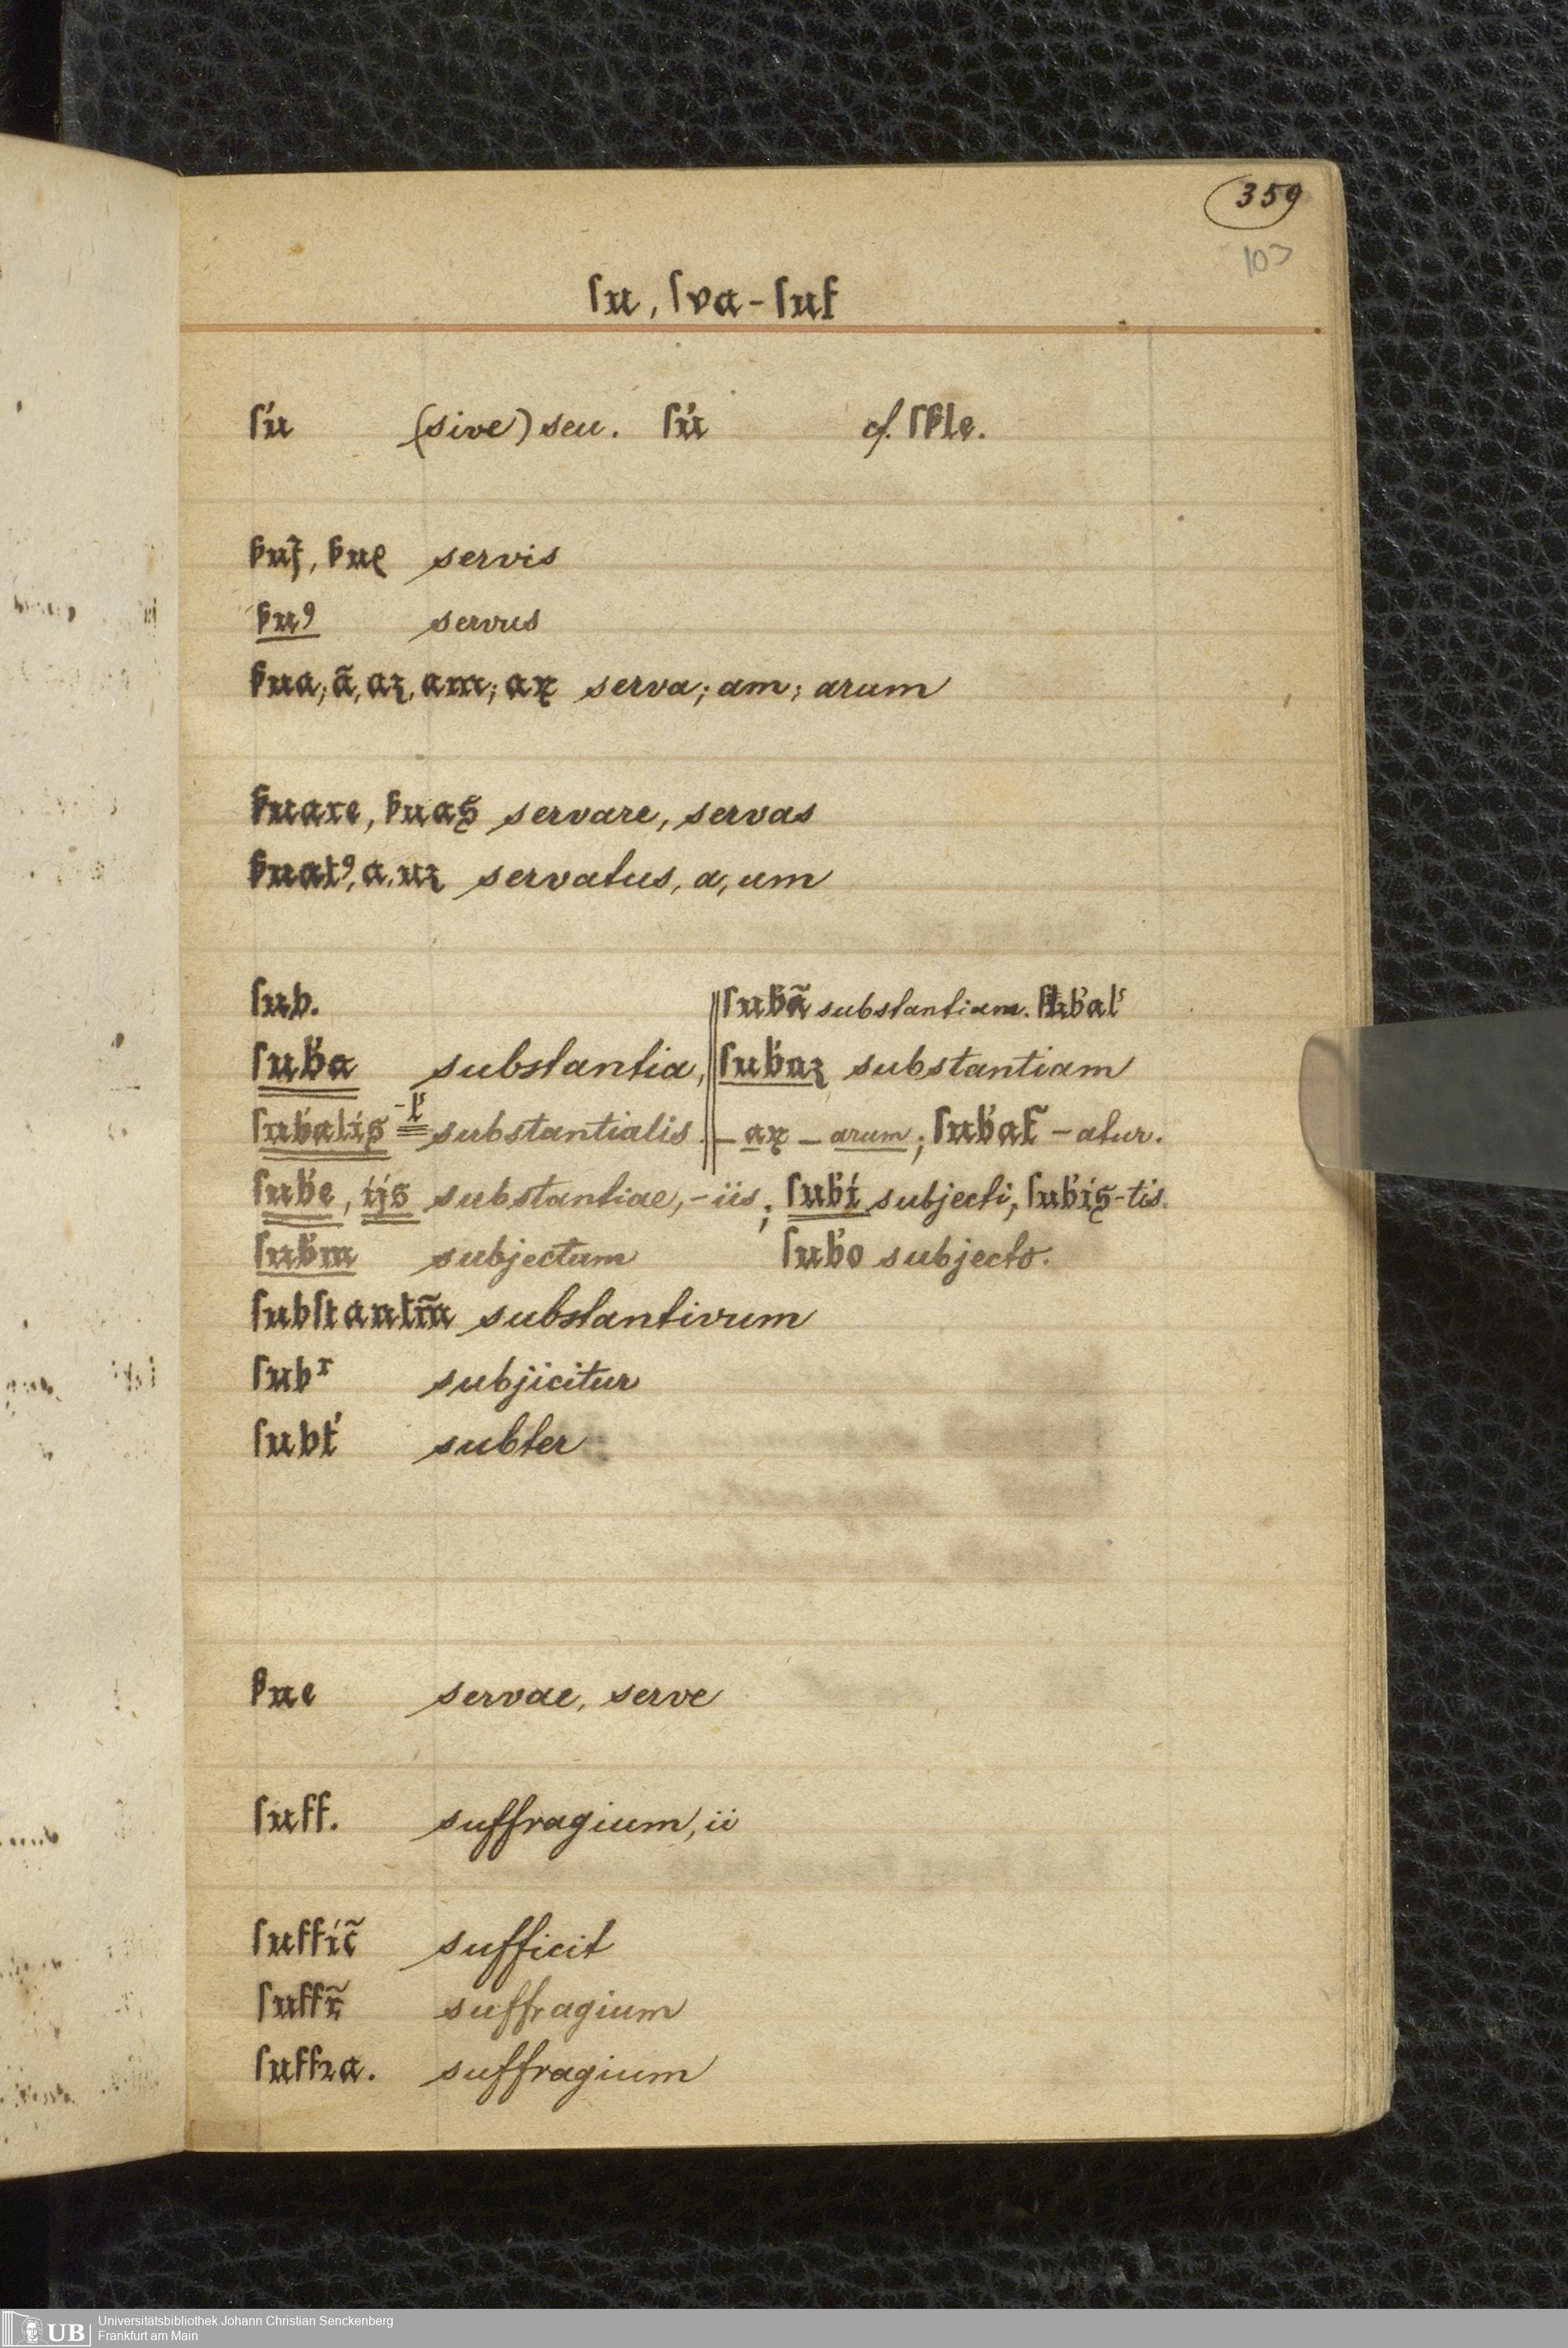 359
103
ſu, ſva - ſuf
ſu̍ (sive) seu. ſu̍ cf. ſꝑle.
ẜuꝭ, ẜuꝭ servis
ẜuꝰ servus
ẜua; ã, aꝫ, am; aꝝ serva; am; arum
ẜuare, ẜuas servare, servas
ẜuatꝰ, a, uꝫ servatus, a, um
ſub.
ſub̍ã substantiam. ſub̍alˢ
ſub̍a substantia, ſub̍aꝫ substantiam
ſub̍alis -lˢ substantialis. - aꝝ - arum; ſub̍at᷑ - atur.
ſub̍e, ijs substantiae, - iis; ſub̍i subjecti, ſub̍is - tis.
ſub̍m subjectum ſub̍o subjecto.
ſubſtantĩu substantivum
ſubʳ subjicitur
ſubt̍ subter
ẜue servae, serve
ſuff. suffragium, ii
ſuffic̃ sufficit
ſuffꝝ̃ suffragium
ſuffꝛa. suffragium
UB Universitätsbibliothek Johann Christian Senckenberg
Frankfurt am Main